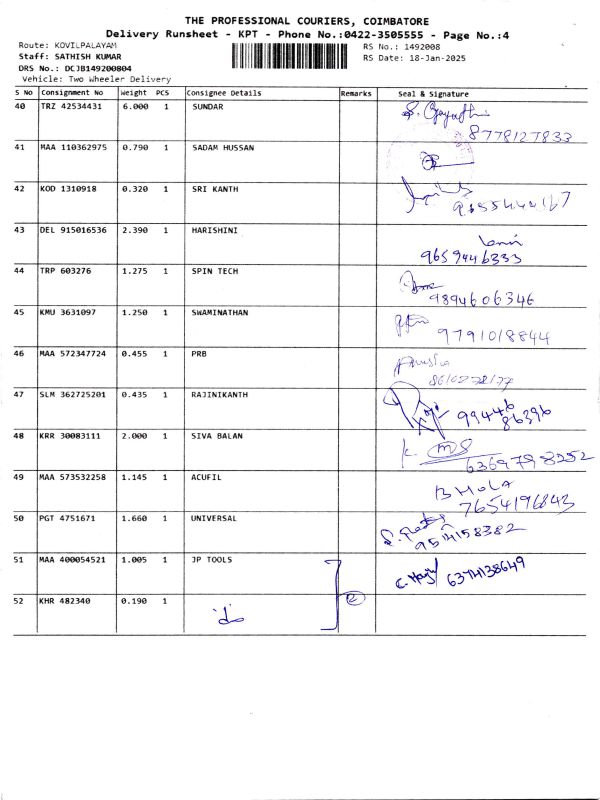 THE PROFESSIONAL COURIERS, COIMBATORE
Delivery Runsheet - KPT - Phone No.:0422-3505555 - Page No.:4
Route: KOVILPALAYAM RS No.: 1492008
Staff: SATHISH KUMAR RS Date: 18-Jan-2025
DRS No.: DCJB149200804
Vehicle: Two Wheeler Delivery
S No Consignment No Weight PCS Consignee Details Remarks Seal & Signature
40 TRZ 42534431 6.000 1 SUNDAR
8778127833
41 MAA 110362975 0.790 1 SADAM HUSSAN
42 KOD 1310918 0.320 1 SRI KANTH
43 DEL 915016536 2.390 1 HARISHINI
9659446333
44 TRP 603276 1.275 1 SPIN TECH
9894606346
45 KMU 3631097 1.250 1 SWAMINATHAN
9791018844
46 MAA 572347724 0.455 1 PRB
47 SLM 362725201 0.435 1 RAJINIKANTH
99446
86396
48 KRR 30083111 2.000 1 SIVA BALAN
6369798252
49 MAA 573532258 1.145 1 ACUFIL
BHOLA
7654196843
50 PGT 4751671 1.660 1 UNIVERSAL
9514158382
51 MAA 400054521 1.005 1 JP TOOLS
6374138649
52 KHR 482340 0.190 1